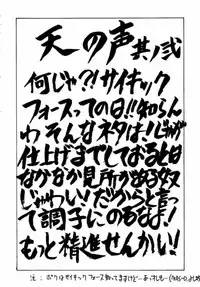 天の声其ノ弐
何じゃ?!サイキック
フォースっての日!!知らん
わそんなネタは!じゃが
仕上げまでしておると曰
なかなか見所がある奴
じゃわい!だからと言っ
て調子にのるなよ!
もっと精進せんかい!
注:ボクはサイキックフォース知ってますけど…